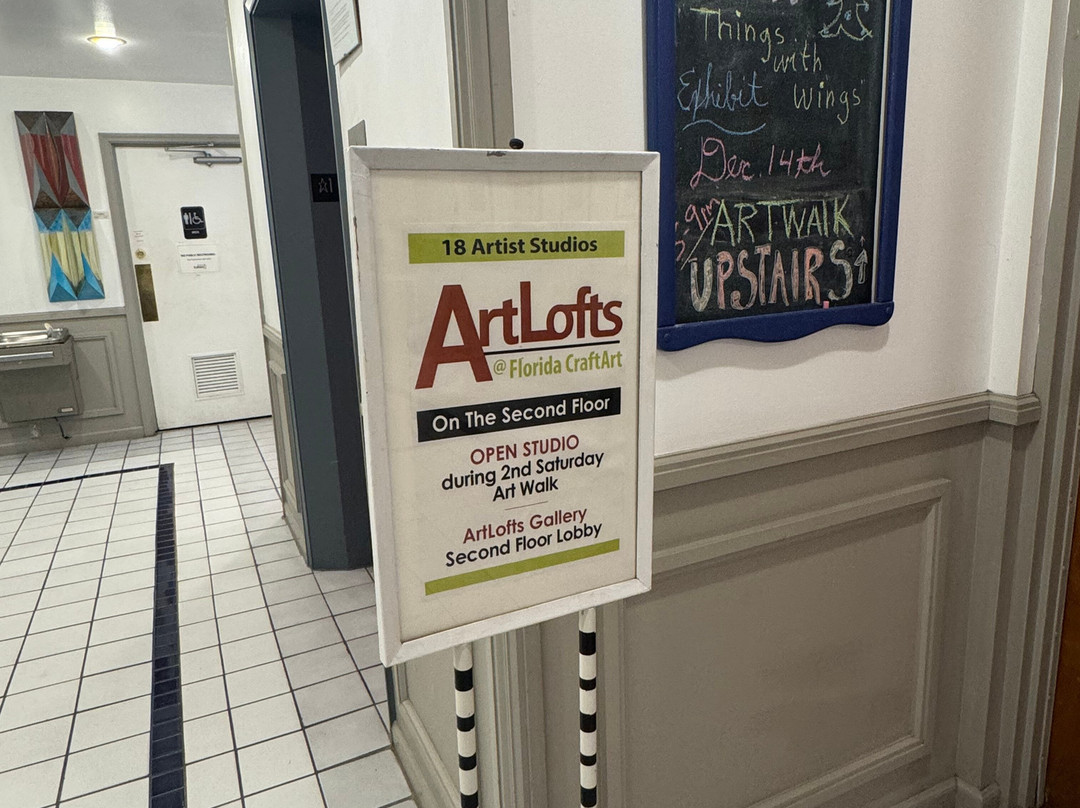 18 Artist Studios
ArtLofts
@ Florida CraftArt
On The Second Floor
OPEN STUDIO
during 2nd Saturday
Art Walk
ArtLofts Gallery
Second Floor Lobby
Things
with
Exhibit Wings
Dec. 14th
9pm ARTWALK
UPSTAIRS